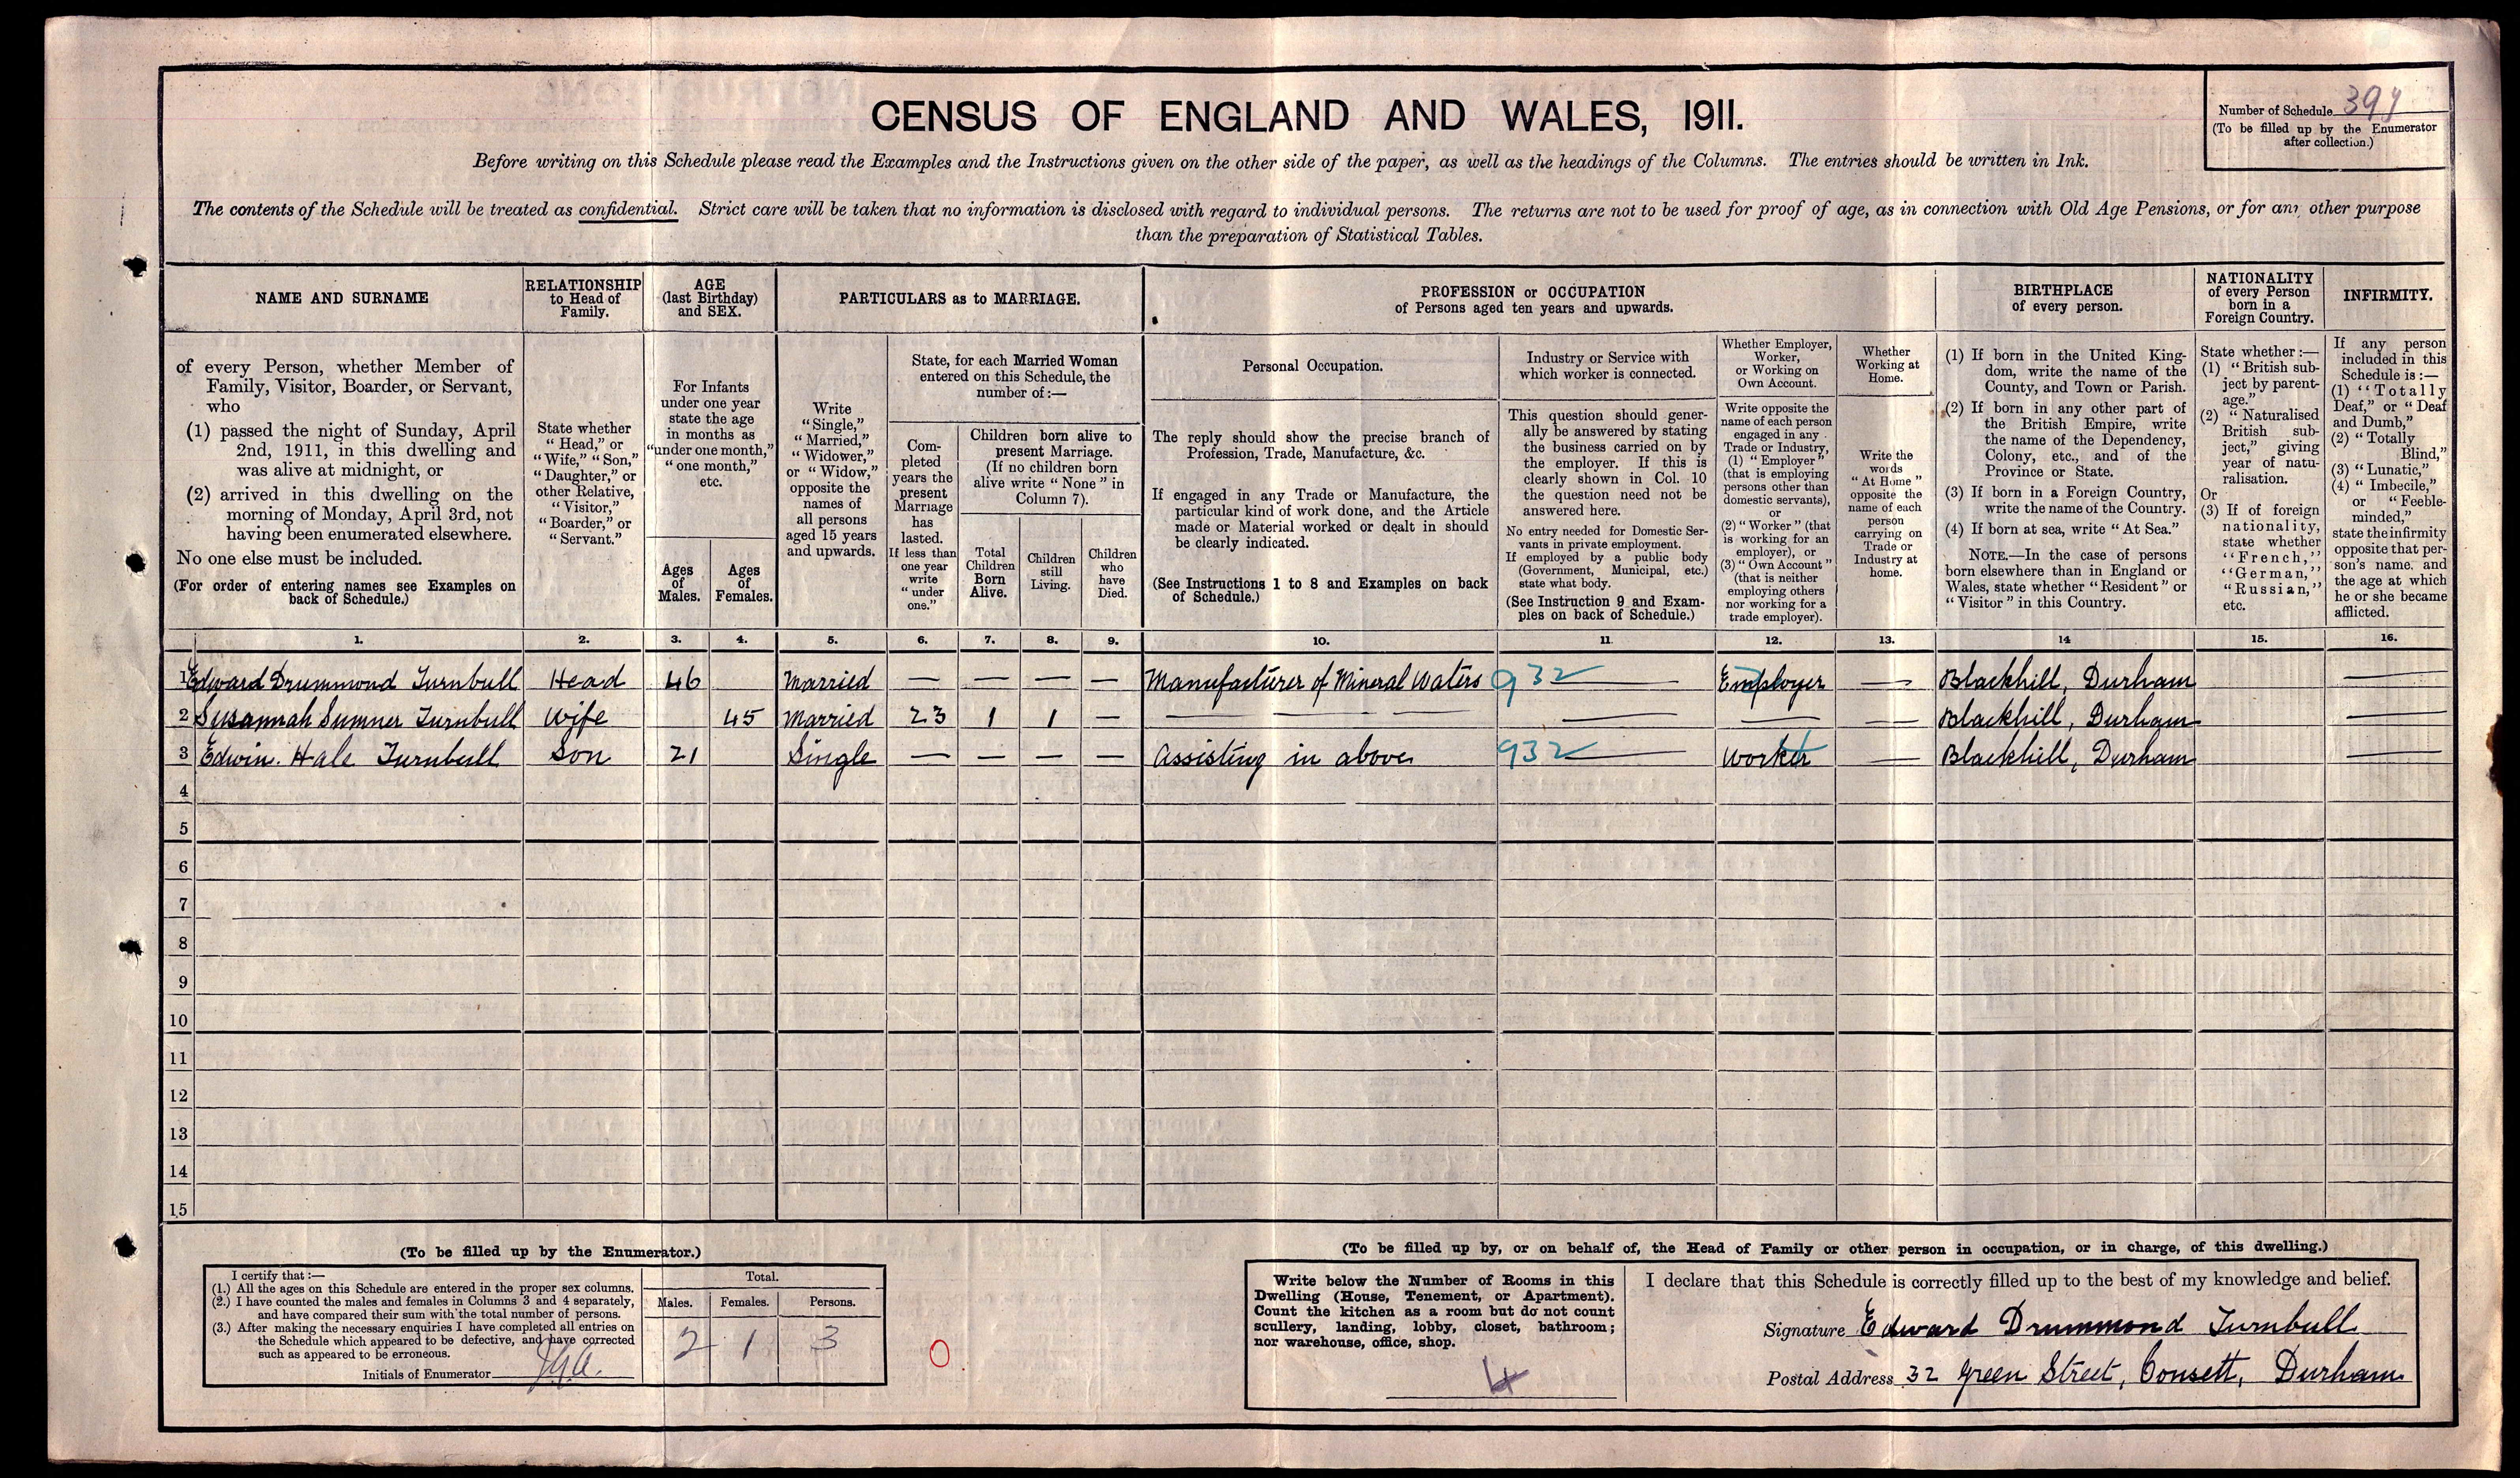 CENSUS OF ENGLAND AND WALES, 1911.
Number of Schedule
(To be filled up by the Enumerator
after collection.)
Before writing on this Schedule please read the Examples and the Instructions given on the other side of the paper, as well as the headings of the Columns. The entries should be written in Ink.
The contents of the Schedule will be treated as confidential. Strict care will be taken that no information is disclosed with regard to individual persons. The returns are not to be used for proof of age, as in connection with Old Age Pensions, or for any other purpose
than the preparation of Statistical Tables.
NAME AND SURNAME
of every Person, whether Member of
Family, Visitor, Boarder, or Servant,
who
(1) passed the night of Sunday, April
2nd, 1911, in this dwelling and
was alive at midnight, or
(2) arrived in this dwelling on the
morning of Monday, April 3rd, not
having been enumerated elsewhere.
No one else must be included.
(For order of entering names see Examples on
back of Schedule.)
RELATIONSHIP
to Head of
Family.
State whether
"Head," or
"Wife," "Son,"
"Daughter," or
other Relative,
"Visitor,"
"Boarder," or
"Servant."
AGE
(last Birthday)
and SEX.
For Infants
under one year
state the age
in months as
"under one month,"
"one month,"
etc.
Ages
of
Males.
Ages
of
Females.
PARTICULARS as to MARRIAGE.
Write
"Single,"
"Married,"
"Widower,"
or "Widow,"
opposite the
names of
all persons
aged 15 years
and upwards.
State, for each Married Woman
entered on this Schedule, the
number of:—
Com-
pleted
years the
present
Marriage
has
lasted.
If less than
one year
write
"under
one."
Children born alive to
present Marriage.
(If no children born
alive write "None" in
Column 7).
Total
Children
Born
Alive.
Children
still
Living.
Children
who
have
Died.
PROFESSION or OCCUPATION
of Persons aged ten years and upwards.
Personal Occupation.
The reply should show the precise branch of
Profession, Trade, Manufacture, &c.
If engaged in any Trade or Manufacture, the
particular kind of work done, and the Article
made or Material worked or dealt in should
be clearly indicated.
(See Instructions 1 to 8 and Examples on back
of Schedule.)
Industry or Service with
which worker is connected.
This question should gener-
ally be answered by stating
the business carried on by
the employer. If this is
clearly shown in Col. 10
the question need not be
answered here.
No entry needed for Domestic Ser-
vants in private employment.
If employed by a public body
(Government, Municipal, etc.)
state what body.
(See Instruction 9 and Exam-
ples on back of Schedule.)
Whether Employer,
Worker,
or Working on
Own Account.
Write opposite the
name of each person
engaged in any
Trade or Industry,
(1) "Employer"
(that is employing
persons other than
domestic servants),
or
(2) "Worker" (that
is working for an
employer), or
(3) "Own Account"
(that is neither
employing others
nor working for a
trade employer).
Whether
Working at
Home.
Write the
words
"At Home"
opposite the
name of each
person
carrying on
Trade or
Industry at
home.
BIRTHPLACE
of every person.
(1) If born in the United King-
dom, write the name of the
County, and Town or Parish.
(2) If born in any other part of
the British Empire, write
the name of the Dependency,
Colony, etc., and of the
Province or State.
(3) If born in a Foreign Country,
write the name of the Country.
(4) If born at sea, write "At Sea."
NOTE.—In the case of persons
born elsewhere than in England or
Wales, state whether "Resident" or
"Visitor" in this Country.
NATIONALITY
of every Person
born in a
Foreign Country.
State whether:—
(1) "British sub-
ject by parent-
age."
(2) "Naturalised
British sub-
ject," giving
year of natu-
ralisation.
Or
(3) If of foreign
nationality,
state whether
"French,"
"German,"
"Russian,"
etc.
INFIRMITY.
If any person
included in this
Schedule is:—
(1) "Totally
Deaf," or "Deaf
and Dumb,"
(2) "Totally
Blind,"
(3) "Lunatic,"
(4) "Imbecile,"
or "Feeble-
minded,"
state the infirmity
opposite that per-
son's name, and
the age at which
he or she became
afflicted.
1. 2. 3. 4. 5. 6. 7. 8. 9. 10. 11 12. 13. 14 15. 16.
1 Edward Drummond Turnbull Head 46 Married — — — — Manufacturer of Mineral Waters 932 — Employer — Blackhill, Durham —
2 Susannah Sumner Turnbull Wife 45 Married 23 1 1 — — — — — Blackhill, Durham —
3 Edwin Hale Turnbull Son 21 Single — — — — Assisting in above 932 — Worker — Blackhill, Durham —
4
5
6
7
8
9
10
11
12
13
14
15
(To be filled up by the Enumerator.)
I certify that:—
(1.) All the ages on this Schedule are entered in the proper sex columns.
(2.) I have counted the males and females in Columns 3 and 4 separately,
and have compared their sum with the total number of persons.
(3.) After making the necessary enquiries I have completed all entries on
the Schedule which appeared to be defective, and have corrected
such as appeared to be erroneous.
Initials of Enumerator
Total.
Males. Females. Persons.
2 1 3
0
(To be filled up by, or on behalf of, the Head of Family or other person in occupation, or in charge, of this dwelling.)
Write below the Number of Rooms in this
Dwelling (House, Tenement, or Apartment).
Count the kitchen as a room but do not count
scullery, landing, lobby, closet, bathroom;
nor warehouse, office, shop.
4
I declare that this Schedule is correctly filled up to the best of my knowledge and belief.
Signature Edward Drummond Turnbull
Postal Address 32 Green Street, Consett, Durham